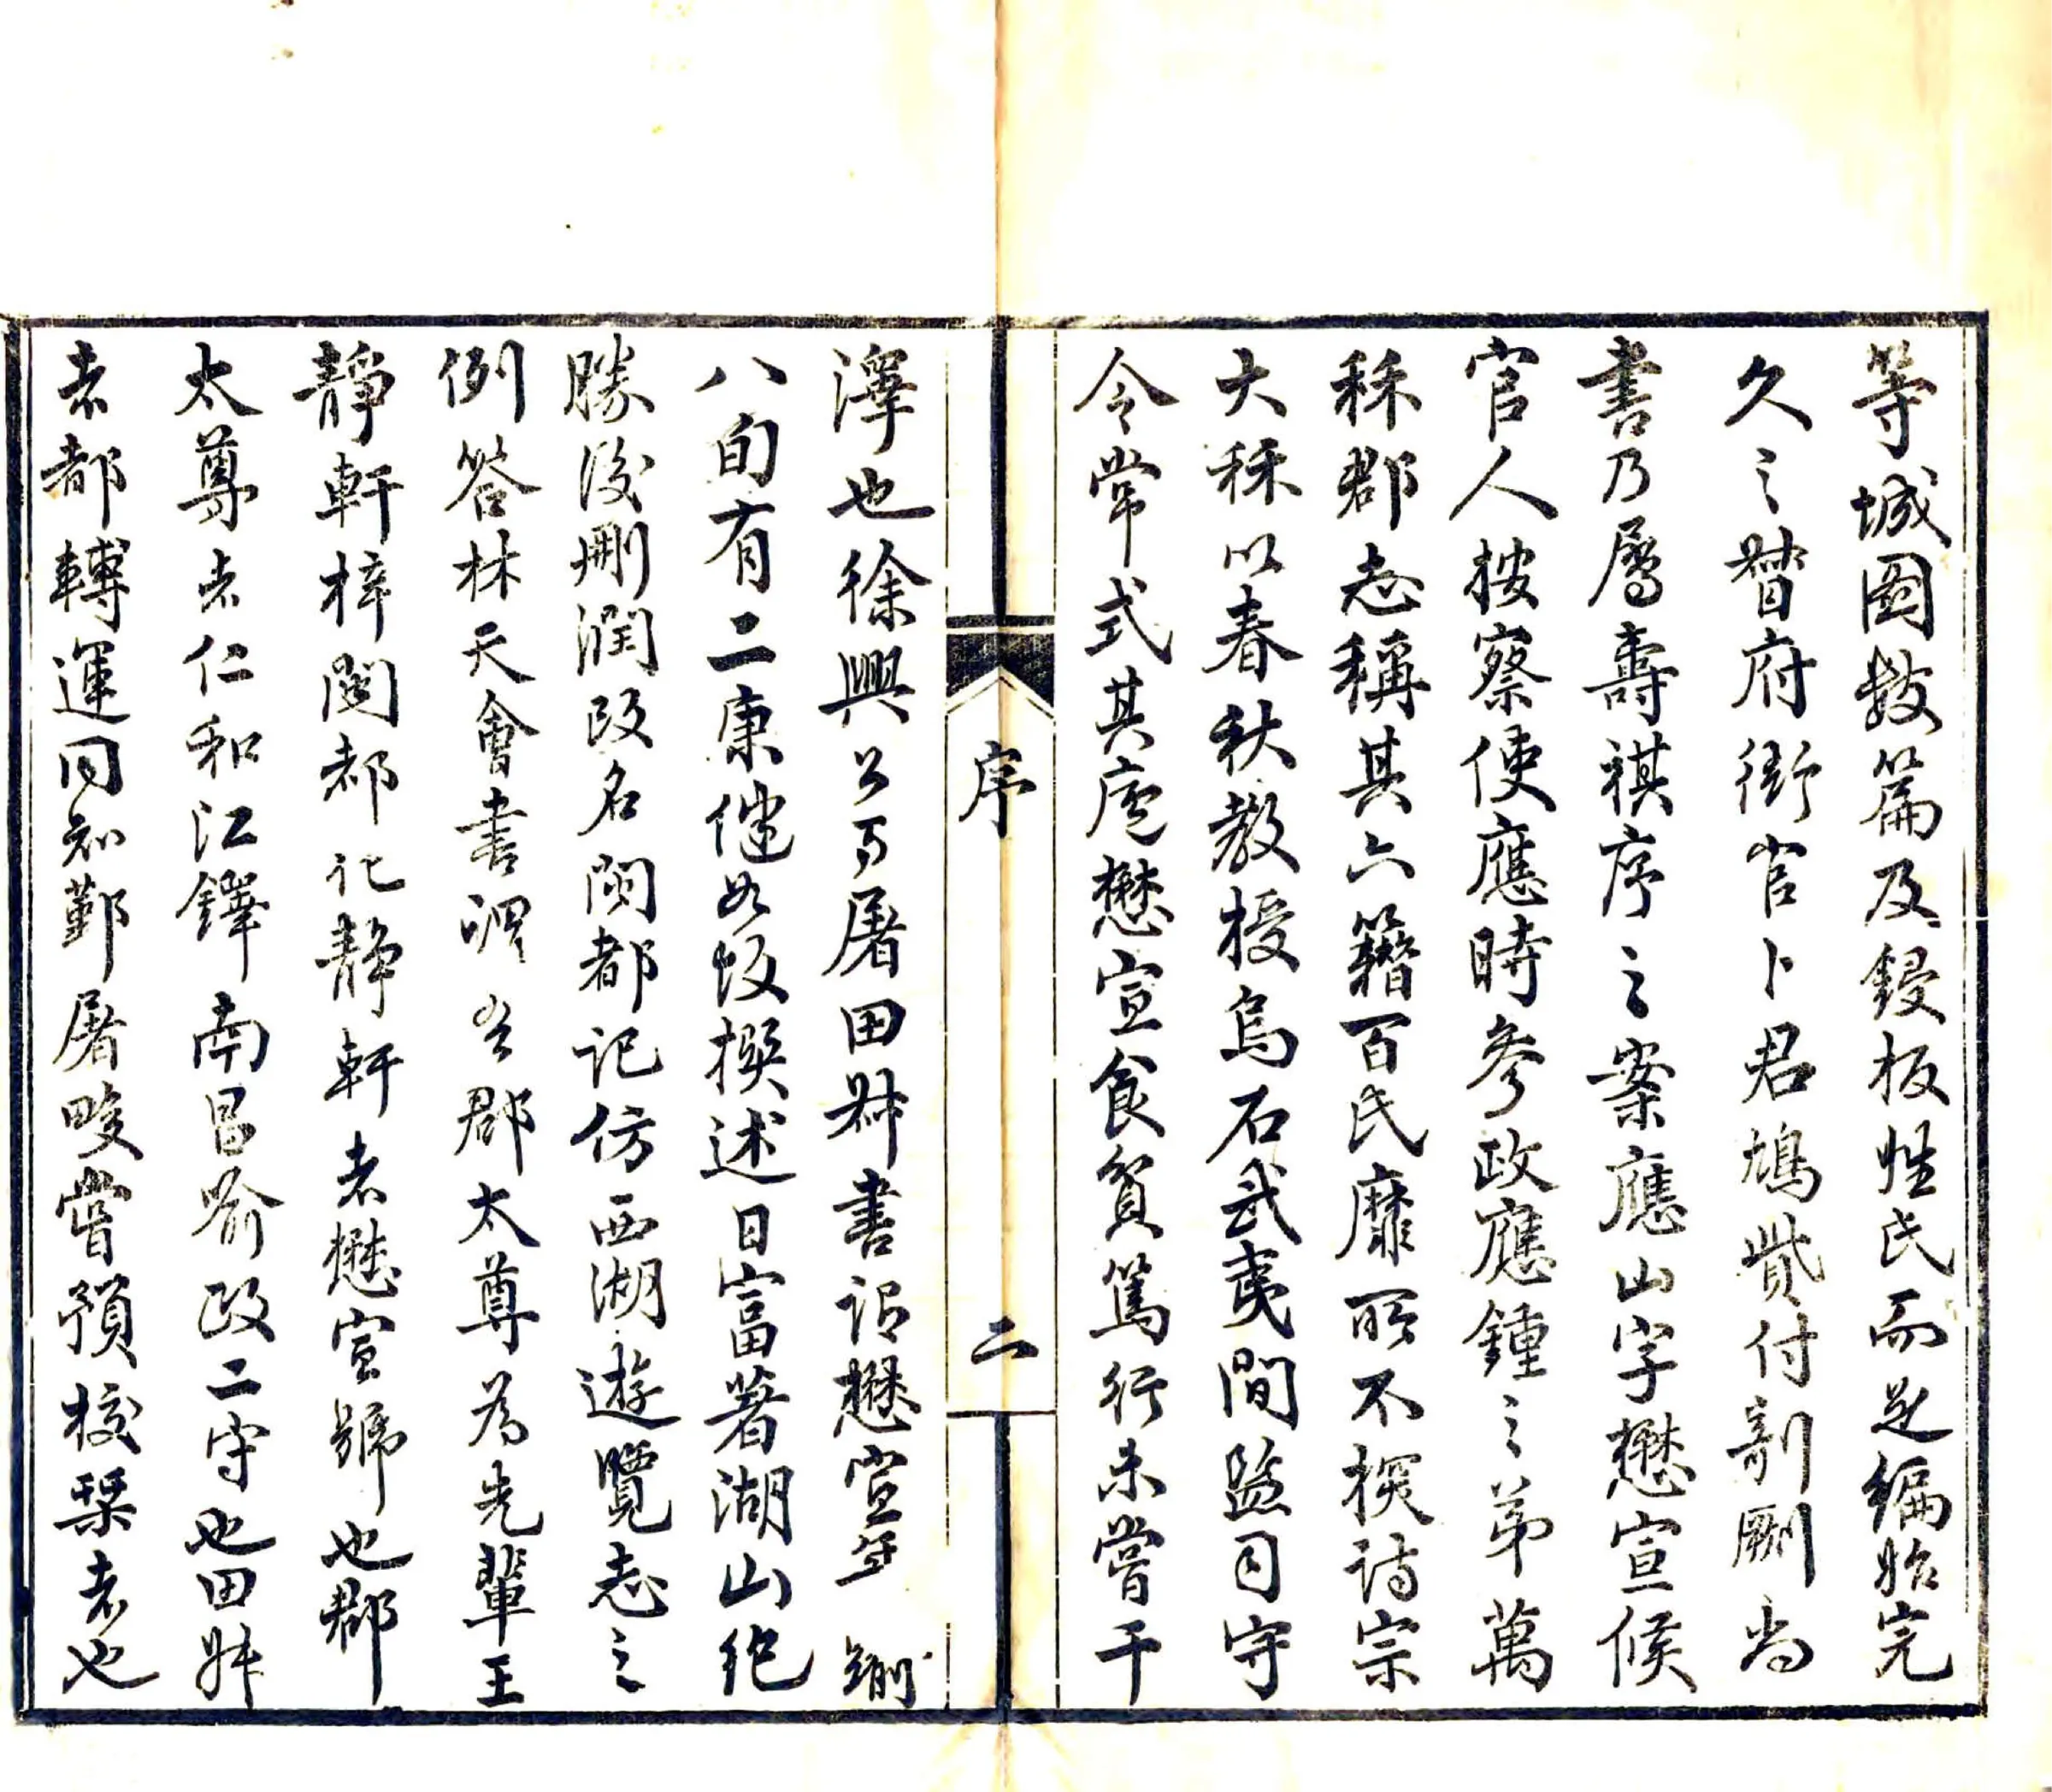 等城圖數篇及鋟板姓氏而是編始完
久之督府銜官卜君鳩貲付剞劂尚
書乃屬壽祺序之案應山字懋宣候
官人按察使應時參政應鍾之弟萬
秝郡志稱其六籍百氏靡所不探詩宗
大秝以春秋教授烏石武夷間監司守
令常式其廬懋宣食貧篤行未嘗干
序
二
澤也徐興公与屠田叔書謂懋宣年鏰
八旬有二康健如故撰述日富著湖山絕
勝後刪潤改名閩都記仿西湖遊覽志之
例答林天會書謂公郡太尊為先輩王
靜軒梓閩都記靜軒者懋宣號也郡
太尊者仁和江鐸南昌喻政二守也田叔
者都轉運同知鄞屠畯嘗預校琹者也